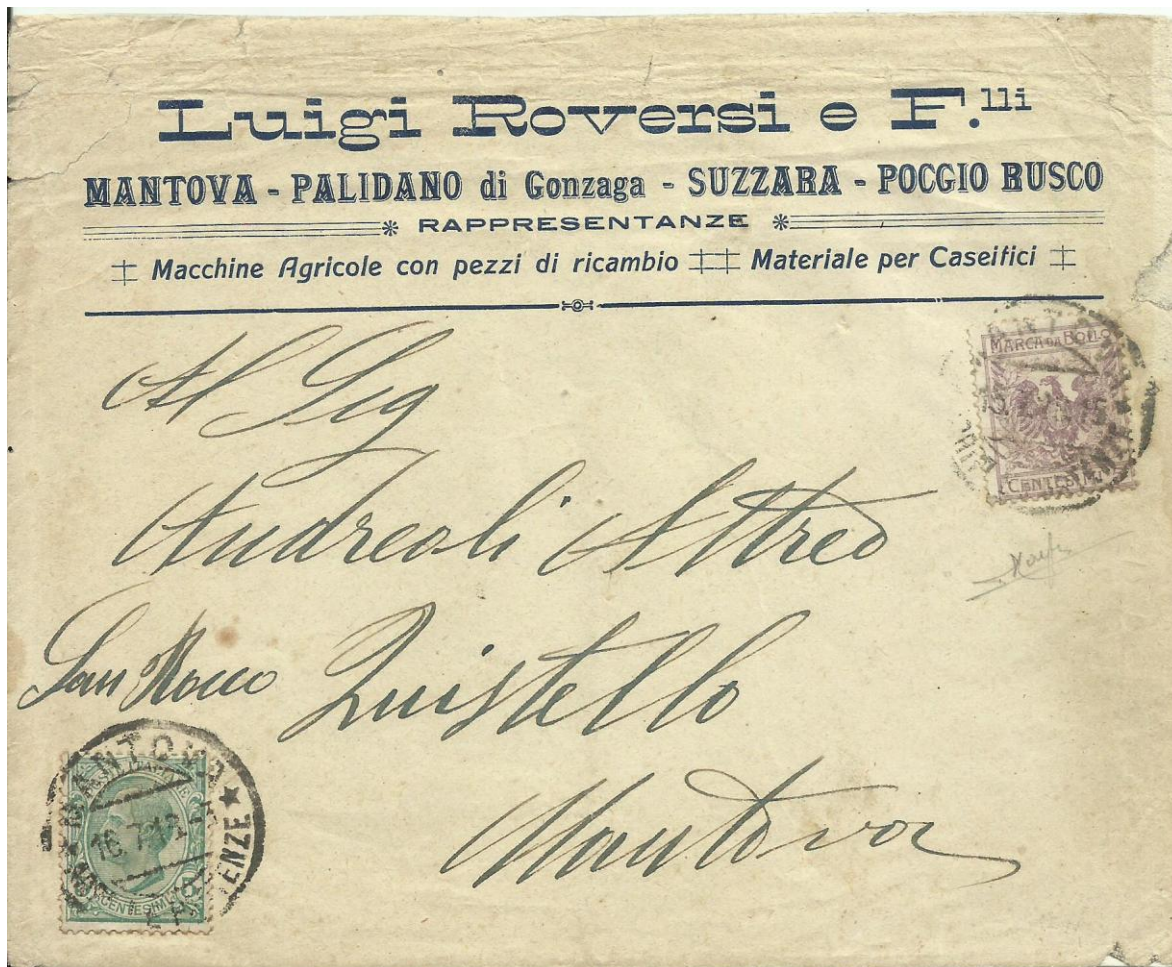 Luigi Roversi e F.lli
MANTOVA - PALIDANO di Gonzaga - SUZZARA - POGGIO RUSCO
RAPPRESENTANZE
Macchine Agricole con pezzi di ricambio Materiale per Caseifici
MARCA DA BOLLO
CENTESIMI
Al Sig
Andreoli Alfred
San Rocco Quistello
Mantova
MANTOVA
16.7
PARTENZE
5
CENTESIMI